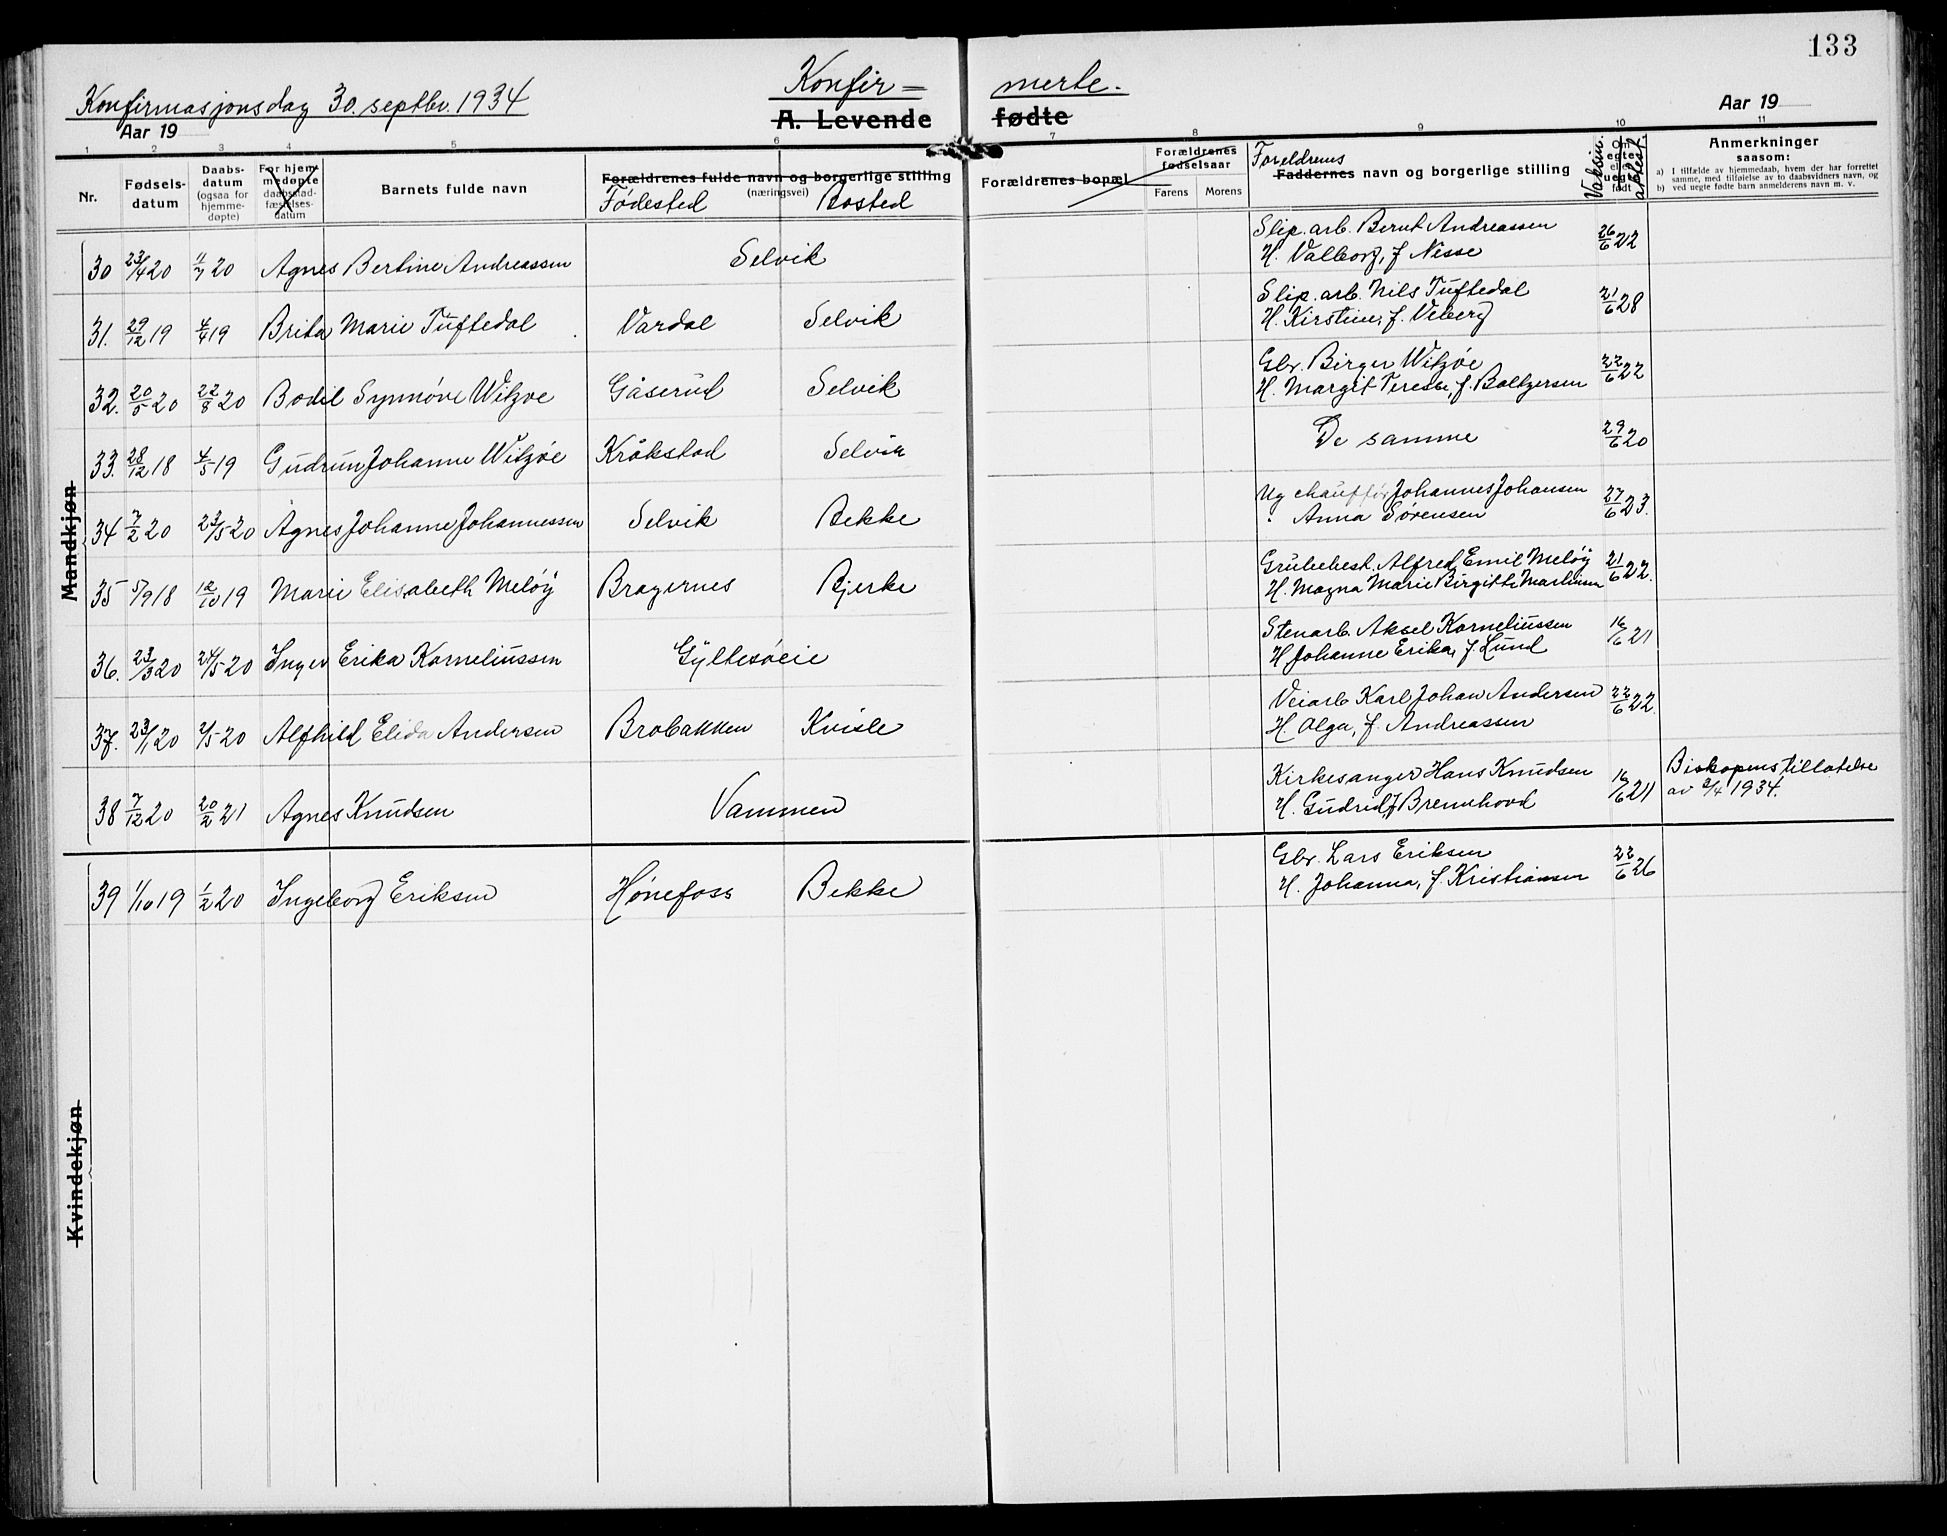 133
Konfirmasjonsdag 30. septbr. 1934
Konfir= merte.
Aar 19
A. Levende fødte
Aar 19
1 2 3 4 5 6 7 8 9 10 11
Nr.
Fødsels-
datum
Daabs-
datum
(ogsaa for
hjemme-
døpte)
For hjem-
medøpte
daabsstad-
fæstelses-
datum
Barnets fulde navn
Forældrenes fulde navn og borgerlige stilling
(næringsvei)
Fødested Bosted
Forældrenes bopæl
Forældrenes
fødselsaar
Farens Morens
Foreldrenes
Faddernes navn og borgerlige stilling
Om
egte
eller
uegte
født
Vaksin. attest.
Anmerkninger
saasom:
a) I tilfælde av hjemmedaab, hvem der har forrettet
samme, med tilføielse av to daabsvidners navn, og
b) ved uegte fødte barn anmelderens navn m. v.
Mandkjøn
30 23/4 20 11/7 20 Agnes Bertine Andreassen Selvik Slip. arb. Bernt Andreassen 26/6 22
H. Valborg, f Nesse
31. 29/12 19 4/4 19 Brita Marie Tuftedal Vardal Selvik Slip. arb. Nils Tuftedal 21/6 28
H. Kirstine, f. Veberg
32. 20/5 20 22/8 20 Bodil Synnøve Witzøe Gåserud Selvik Gbr. Birger Witzøe 22/6 22
H. Margit Terese, f. Baltzersen
33. 28/12 18 4/5 19 Gudrun Johanne Witzøe Kråkstad Selvik De samme 29/6 20
34 7/2 20 23/5 20 Agnes Johanne Johannessen Selvik Bekke Ug chauffør Johannes Johansen 27/6 23.
" Anna Sørensen
35 5/9 18 12/10 19 Marie Elisabeth Meløy Bragernes Bjerke Grubebest. Alfred Emil Meløy 21/6 22.
H. Magna Marie Birgitte Martinsen
36. 23/3 20 24/5 20 Inger Erika Korneliussen Gyltesøeie Stenarb. Aksel Korneliussen 16/6 21
H Johanne Erika, f Lund
37. 23/1 20 2/5 20 Alfhild Elida Andersen Brobakken Kvisle Veiarb Karl Johan Andersen 22/6 22.
H. Olga, f. Andreassen
38 7/12 20 20/2 21 Agnes Knudsen Vammen Kirkesanger Hans Knudsen 16/6 21 Biskopens tillatelse
H. Gudrid, f Brennhovd av 3/4 1934.
39 1/10 19 1/2 20 Ingeborg Eriksen Hønefoss Bekke Gbr. Lars Eriksen 22/6 26
H. Johanna, f. Kristiansen
Kvindekjøn